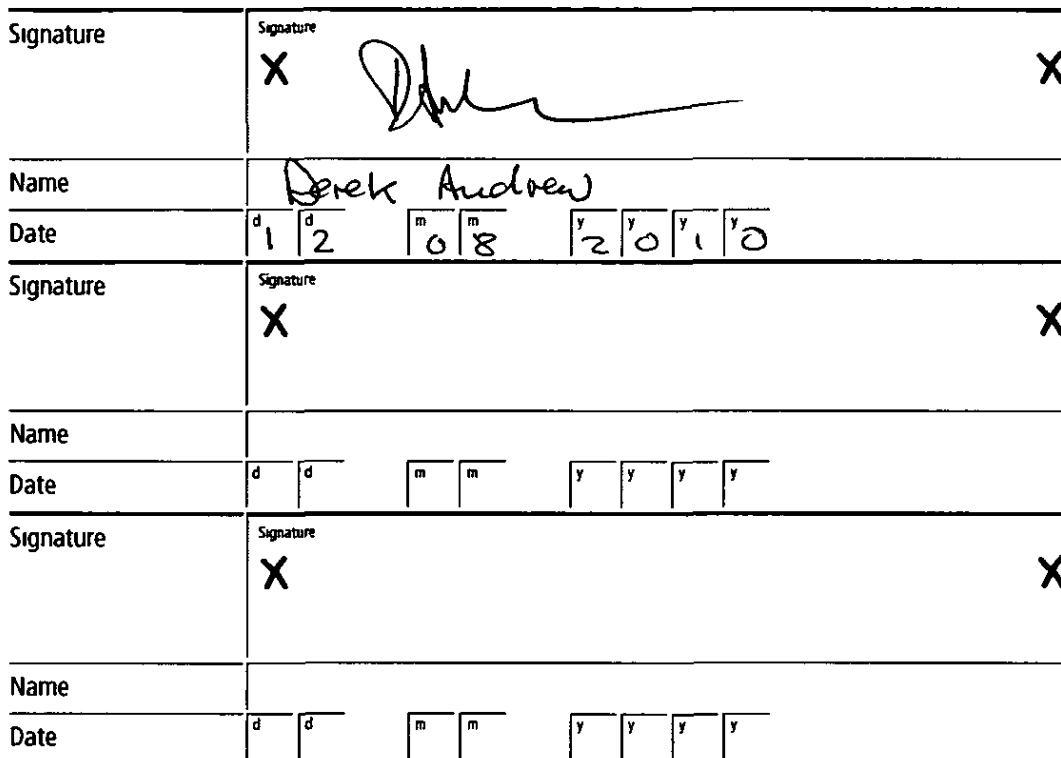 Signature Signature
X X
Name Derek Andrew
Date d 1 d 2 m 0 m 8 y 2 y 0 y 1 y 0
Signature Signature
X X
Name
Date d d m m y y y y
Signature Signature
X X
Name
Date d d m m y y y y